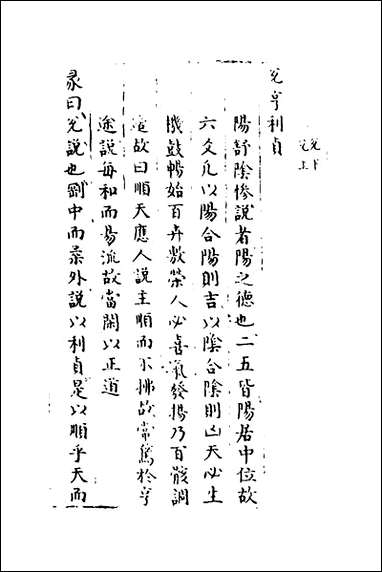 兌亨利貞
兌下
兌上
陽舒陰慘説者陽之德也二五皆陽居中位故
六爻凡以陽合陽則吉以陰合陰則凶天必生
機鼓暢始百卉敷榮人必喜氣發揚乃百骸調
故曰順天應人説主順而不拂故常篤於亨
途説每和而易流故當閑以正道
彖曰兌説也剛中而柔外説以利貞是以順乎天而